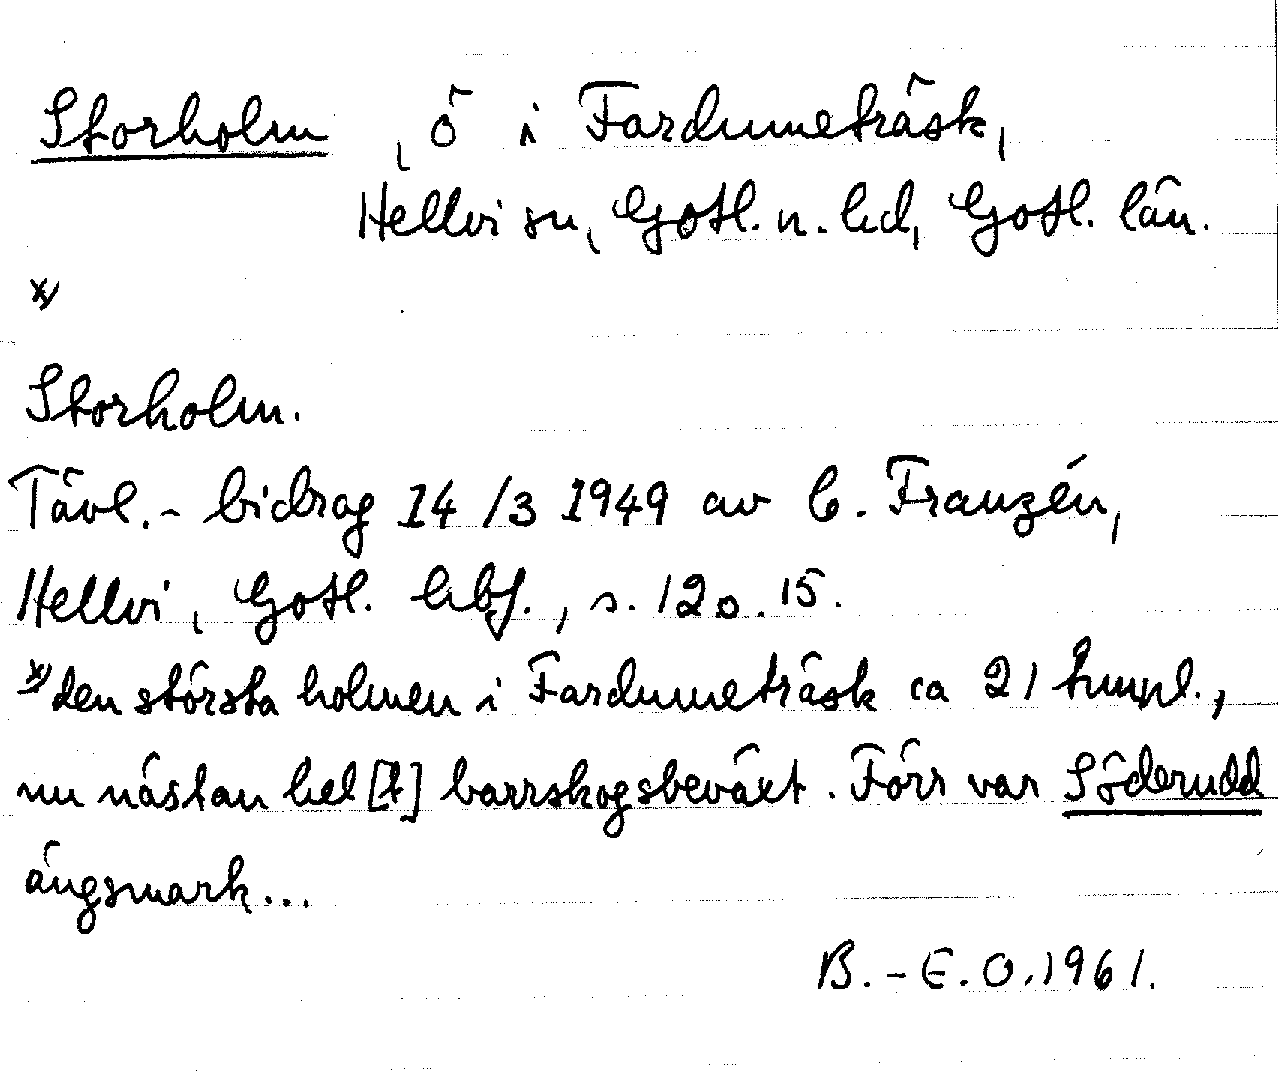 Storholm , ö i Fardumeträsk,
Hellvi sn, Gotl. n. hd, Gotl. län.
x)
Storholm.
Tävl.- bidrag 14/3 1949 av C. Franzén,
Hellvi, Gotl. hbf., s. 12 o. 15.
x) den största holmen i Fardumeträsk ca 21 tunnl.,
nu nästan hel[t] barrskogsbeväxt. Förr var Söderudd
ängsmark...
B.-E. O. 1961.